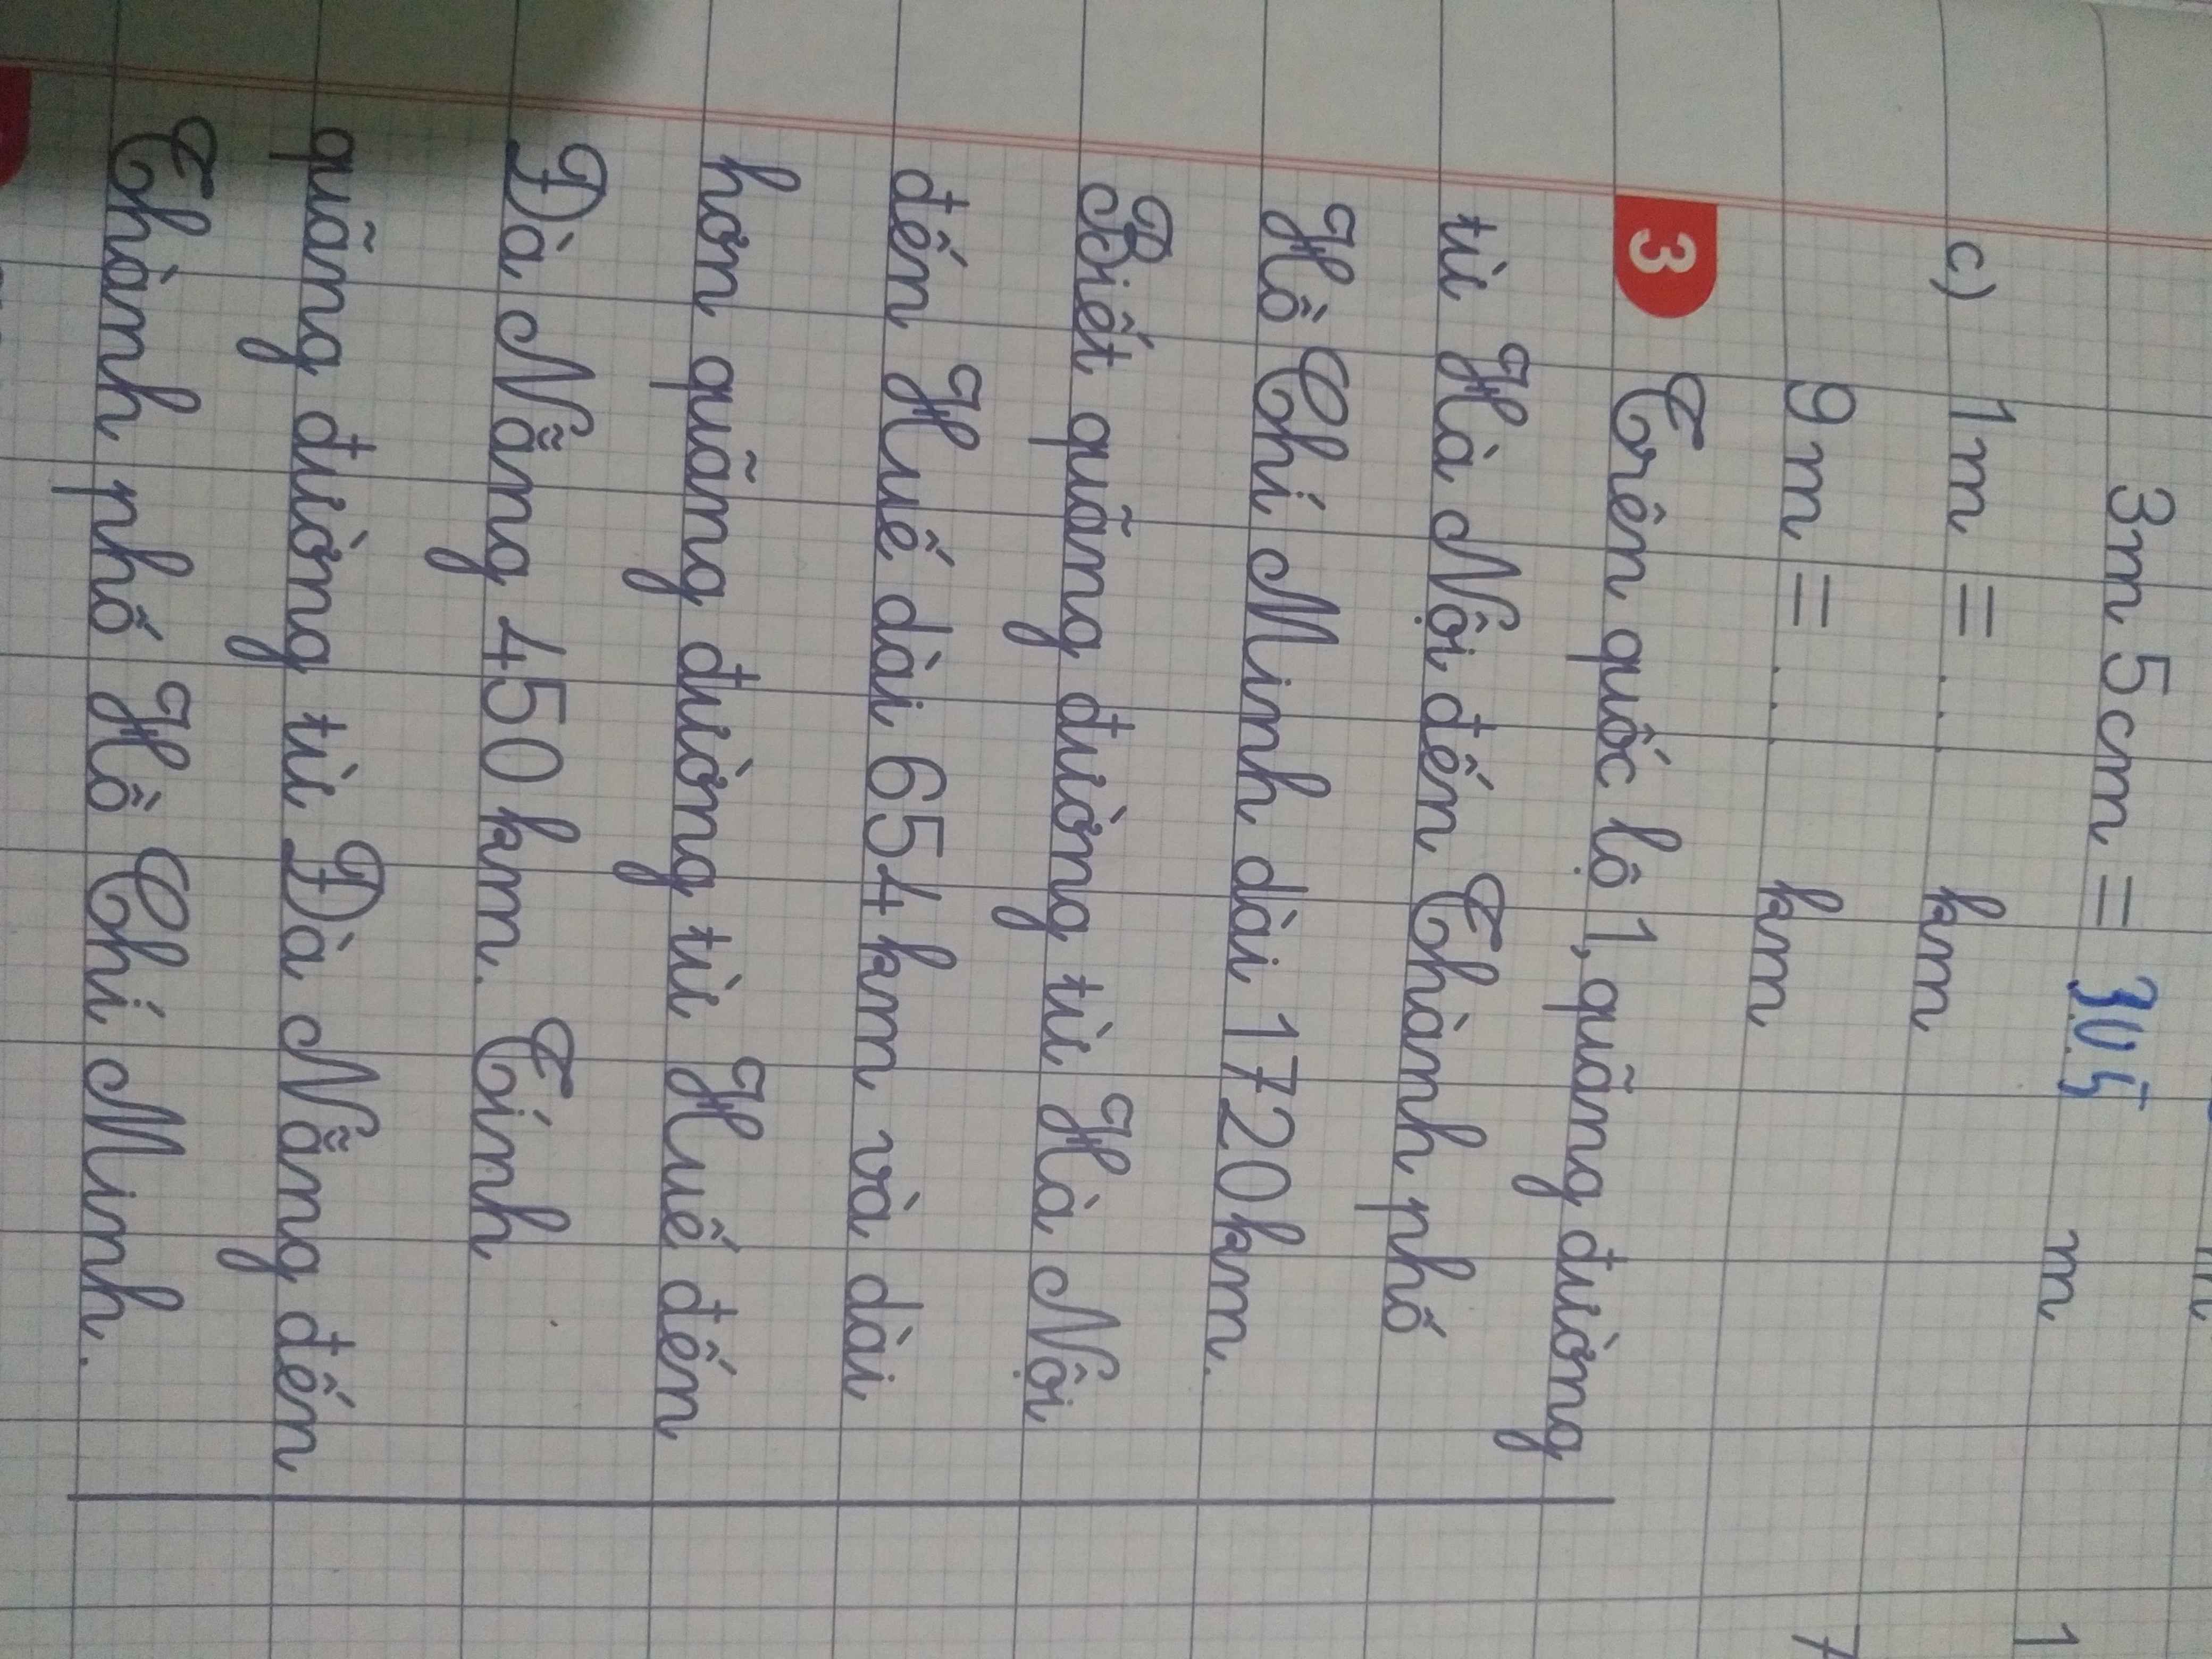 3m 5cm = 3,05 m
c) 1m = ... km 1
9m = ... km 7
3 Trên quốc lộ 1, quãng đường
từ Hà Nội đến Thành phố
Hồ Chí Minh dài 1720km.
Biết quãng đường từ Hà Nội
đến Huế dài 654km và dài
hơn quãng đường từ Huế đến
Đà Nẵng 450km. Tính
quãng đường từ Đà Nẵng đến
Thành phố Hồ Chí Minh.